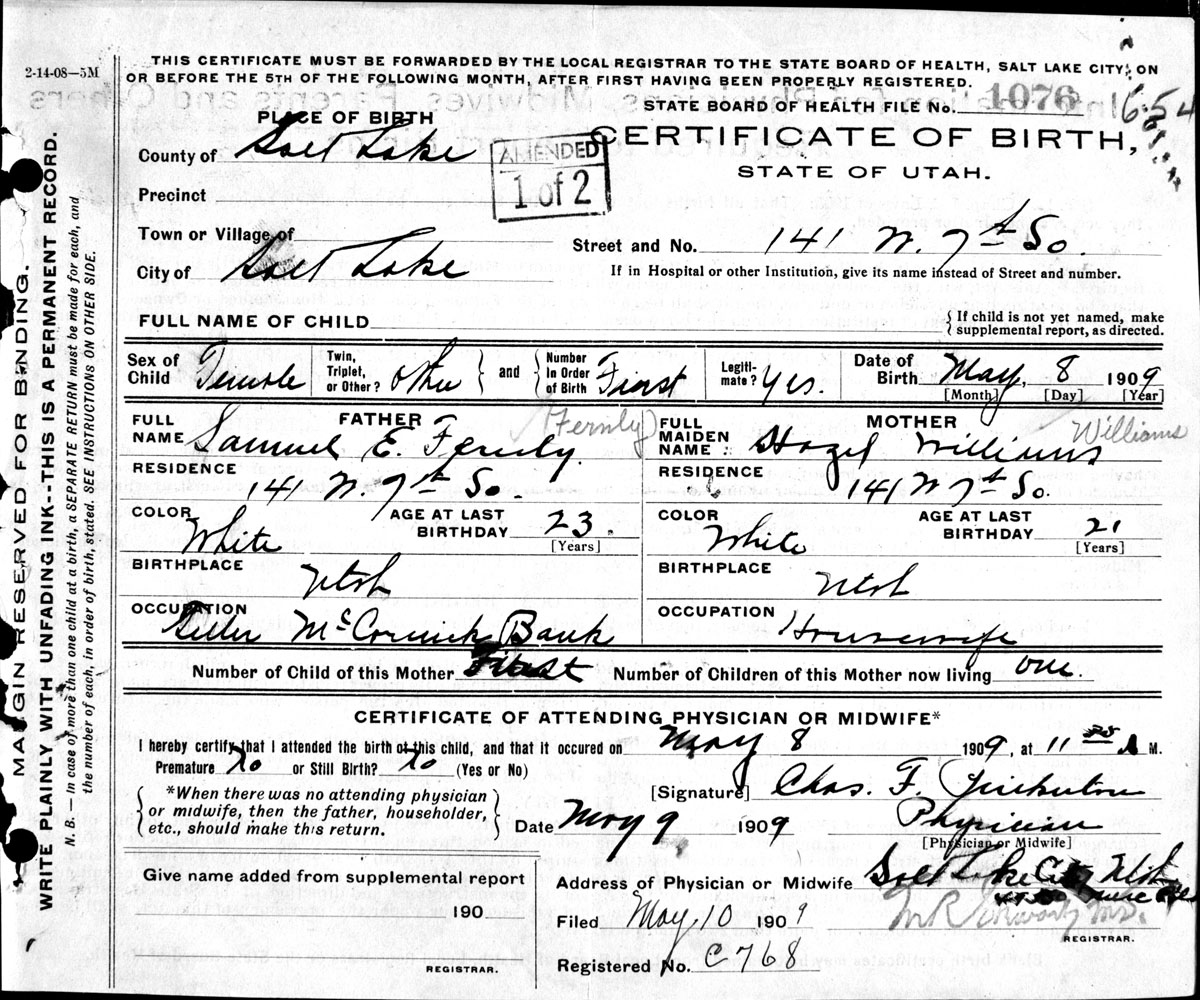 2-14-08—5M
THIS CERTIFICATE MUST BE FORWARDED BY THE LOCAL REGISTRAR TO THE STATE BOARD OF HEALTH, SALT LAKE CITY, ON
OR BEFORE THE 5TH OF THE FOLLOWING MONTH, AFTER FIRST HAVING BEEN PROPERLY REGISTERED.
STATE BOARD OF HEALTH FILE No. 1076 654
PLACE OF BIRTH
CERTIFICATE OF BIRTH,
STATE OF UTAH.
County of Salt Lake
AMENDED
1 of 2
Precinct
Town or Village of
Street and No. 141 W. 7th So.
City of Salt Lake
If in Hospital or other Institution, give its name instead of Street and number.
FULL NAME OF CHILD
{ If child is not yet named, make
supplemental report, as directed.
Sex of Child Female
Twin, Triplet, or Other? other } and { Number In Order of Birth First
Legiti- mate? yes.
Date of Birth May, 8 1909
[Month] [Day] [Year]
FATHER
FULL NAME Samuel E. Fernly. (Fernly)
RESIDENCE
141 W. 7th So.
COLOR White
AGE AT LAST BIRTHDAY 23.
[Years]
BIRTHPLACE
Utah
OCCUPATION
Teller McCornick Bank
MOTHER
FULL MAIDEN NAME : Hazel Williams Williams
RESIDENCE
141 W 7th So.
COLOR White
AGE AT LAST BIRTHDAY 21
[Years]
BIRTHPLACE
Utah
OCCUPATION
Housewife
Number of Child of this Mother First Number of Children of this Mother now living one.
CERTIFICATE OF ATTENDING PHYSICIAN OR MIDWIFE*
I hereby certify that I attended the birth of this child, and that it occured on May 8 1909, at 11 A M.
Premature No or Still Birth? No (Yes or No)
{ *When there was no attending physician
or midwife, then the father, householder,
etc., should make this return. }
[Signature] Chas. F. Pinkerton
Date May 9 1909
Physician
[Physician or Midwife]
Give name added from supplemental report
190
REGISTRAR.
Address of Physician or Midwife Salt Lake City Utah
Filed May 10 1909
M.D.
REGISTRAR.
Registered No. C768
MARGIN RESERVED FOR BINDING.
WRITE PLAINLY WITH UNFADING INK--THIS IS A PERMANENT RECORD.
N. B.—In case of more than one child at a birth, a SEPARATE RETURN must be made for each, and
the number of each, in order of birth, stated. SEE INSTRUCTIONS ON OTHER SIDE.